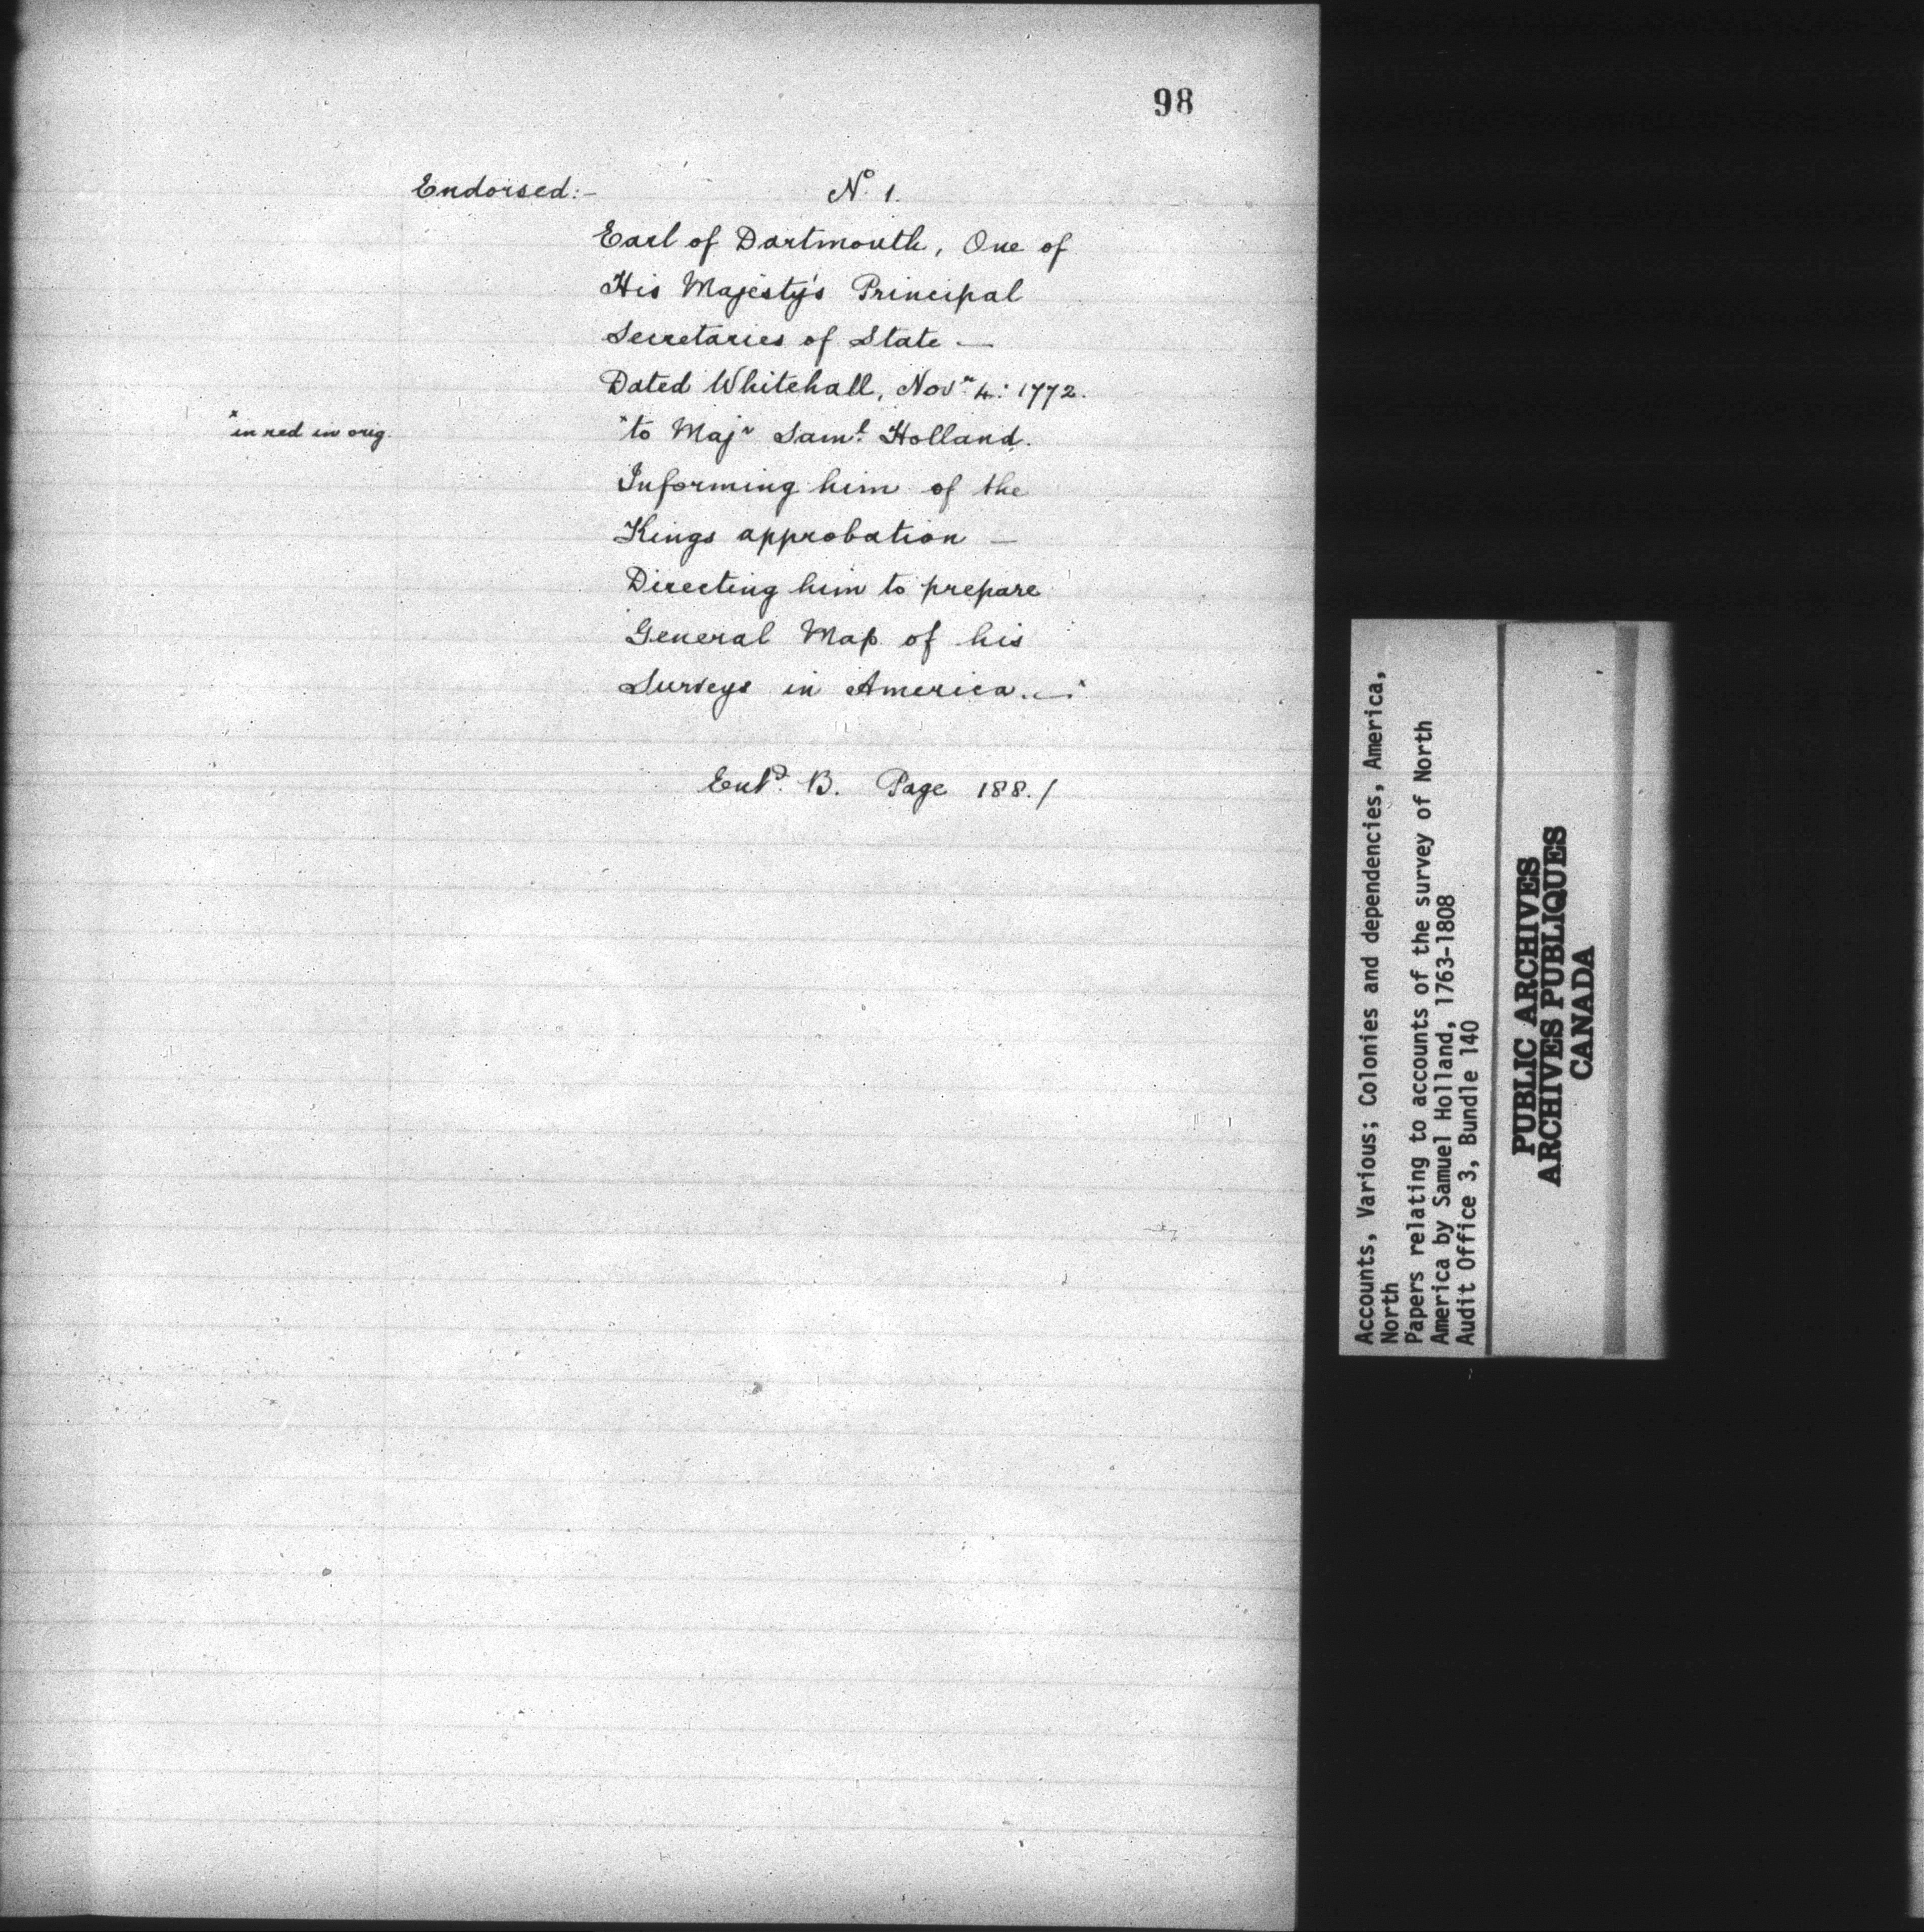 98
Endorsed:- Nº 1.
Earl of Dartmouth, One of
His Majesty's Principal
Secretaries of State —
Dated Whitehall, Novʳ 4: 1772.
ˣin red in orig.
ˣto Majʳ Samˡ Holland.
Informing him of the
Kings approbation —
Directing him to prepare
General Map of his
Surveys in America.—ˣ
Entᵈ. B. Page 188./
Accounts, Various; Colonies and dependencies, America,
North
Papers relating to accounts of the survey of North
America by Samuel Holland, 1763-1808
Audit Office 3, Bundle 140
PUBLIC ARCHIVES
ARCHIVES PUBLIQUES
CANADA